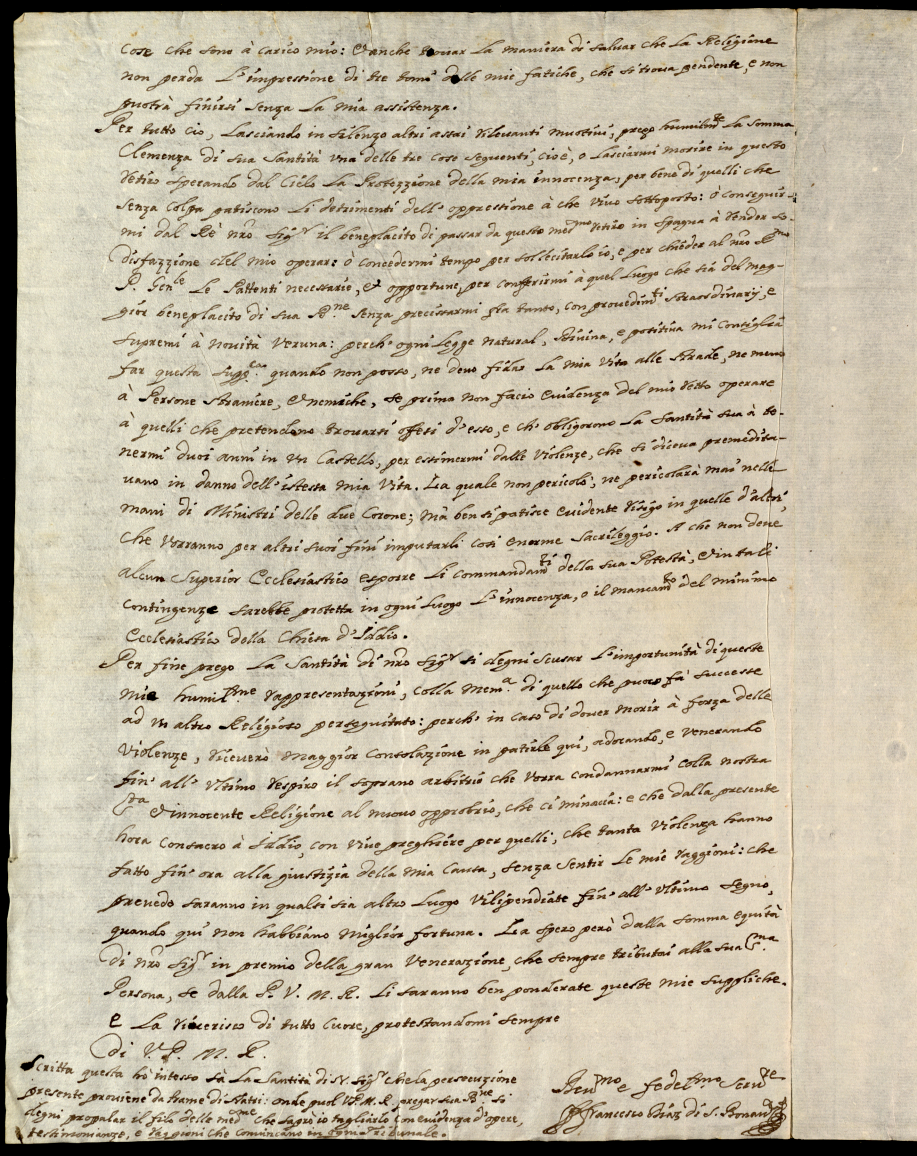 cose che sono à carico mio: Et anche trovar la maniera di salvar che la Religione
non perda l'impressione di tre tomi delle mie fatiche, che si trova pendente, e non
puotrà finirsi senza la mia assistenza.
Per tutto ciò, lasciando in silenzo altri assai rilevanti muotivi, prego humilmte la somma
Clemenza di sua Santità una delle tre cose seguenti, cioè, o lasciarmi morire in questo
retiro sperando dal Cielo la Protezzione della mia innocenza, per bene di quelli che
senza colpa patiscono li detrimenti dell'oppressione à che vivo sottoposto: ò conseguir-
mi dal Rè nro Sigr il beneplacito di passar da questo medmo retiro in Spagna à render so-
disfazzione del mio operar: ò concedermi tempo per sollecitarlo io, e per chieder al nro Rmo
P. Genle le Pattenti necessarie, et opportune, per conferirmi à quel luogo che sia del mag-
gior beneplacito di sua Bne senza precissarmi fra tanto, con provedimti straordinarij, e
supremi à novità veruna: perch' ogni legge natural, divina, e positiva mi consiglia
far questa suppca quando non posso, ne devo fidar la mia vita alle strade, ne meno
à Persone straniere, et nemiche, se prima non facio evidenza del mio retto operare
à quelli che pretendono trovarsi offesi d'esso, e ch' obligorono la Santità sua à te-
nermi duoi anni in un Castello, per estinermi dalle violenze, che si diceva premedita-
vano in danno dell'istessa mia vita. La quale non pericolò, ne pericolarà mai nelle
mani di Ministri delle due Corone; mà ben si patisce evidente risigo in quelle d'altri,
che vorranno per altri suoi fini imputarli così enorme sacrileggio. A che non deve
alcun Superior Ecclesiastico esporre li commandamti della sua Potestà, et in tali
contingenze sarebbe protetta in ogni luogo l'innocenza, o il mancamto del minimo
Ecclesiastico della Chiesa d'Iddio.
Per fine prego la Santità di nro Sigr si degni scusar l'importunità di queste
mie humilme rappresentazioni, colla mema di quello che puoco fà successe
ad un altro Religioso perseguitato: perch' in caso di dover morir à forza delle
violenze, riceverò maggior consolazione in patirle qui, adorando, e venerando
fin' all' ultimo respiro il soprano arbitrio che vorrà condannarmi colla nostra
Sta et innocente Religione al nuovo opprobrio, che ci minacia: e che dalla presente
hora consacro à Iddio, con vive preghiere per quelli, che tanta violenza hanno
fatto fin' ora alla giustizia della mia Causa, senza sentir le mie raggioni: che
prevedo saranno in qualsisia altro luogo vilipendiate fin' all' ultimo segno,
quando qui non habbiano miglior fortuna. La spero però dalla somma equità
di nro Sigr in premio della gran venerazione, che sempre tributai alla sua Sma
Persona, se dalla P. V. M. R. li saranno ben ponderate queste mie suppliche.
e la riverisco di tutto cuore, protestandomi sempre
di V. P. M. R.
Scritta questa hò inteso fà la Santità di N. Sigr che la persecuzione
presente proviene da trame di fratri: onde puol V. P. M. R. pregar sua Bne si
degni propalar il filo delle medme che saprò io tagliarlo con evidenza d'opere,
testimonianze, e raggioni che convincano in ogni Tribunale.
Devmo e fedelmo Servte
Fr Francesco Diaz di S. Bonavra